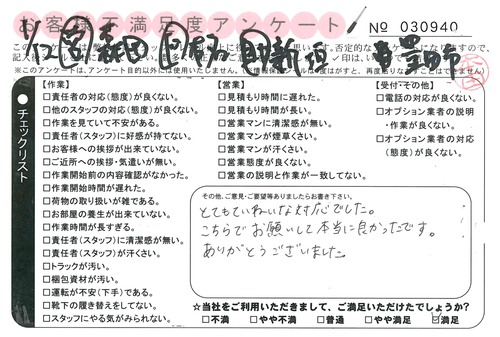 お客様不満足度アンケート
№ 030940
※このアンケートは、アンケート目的以外には使用いたしません。
チェックリスト
【作業】
□責任者の対応(態度)が良くない。
□他のスタッフの対応(態度)が良くない。
□作業を見ていて不安がある。
□責任者(スタッフ)に好感が持てない。
□お客様への挨拶が出来ていない。
□ご近所への挨拶・気遣いが無い。
□作業開始前の内容確認がなかった。
□作業開始時間が遅れた。
□荷物の取り扱いが雑である。
□お部屋の養生が出来ていない。
□作業時間が長すぎる。
□責任者(スタッフ)に清潔感が無い。
□責任者(スタッフ)が汗くさい。
□トラックが汚い。
□梱包資材が汚い。
□運転が不安(下手)である。
□靴下の履き替えをしてくれない。
□スタッフにやる気がみられない。
【営業】
□見積もり時間に遅れた。
□見積もり時間が長い。
□営業マンに清潔感が無い。
□営業マンが煙草くさい。
□営業マンが汗くさい。
□営業態度が良くない。
□営業の説明と作業が一致してない。
【受付・その他】
□電話の対応が良くない。
□オプション業者の説明
・作業が良くない。
□オプション業者の対応
(態度)が良くない。
その他、ご意見・ご要望等ありましたらお書き下さい。
とてもていねいな対応でした。
こちらでお願いして本当に良かったです。
ありがとうございました。
☆当社をご利用いただきまして、ご満足いただけたでしょうか?
□不満 □やや不満 □普通 □やや満足 ☑満足